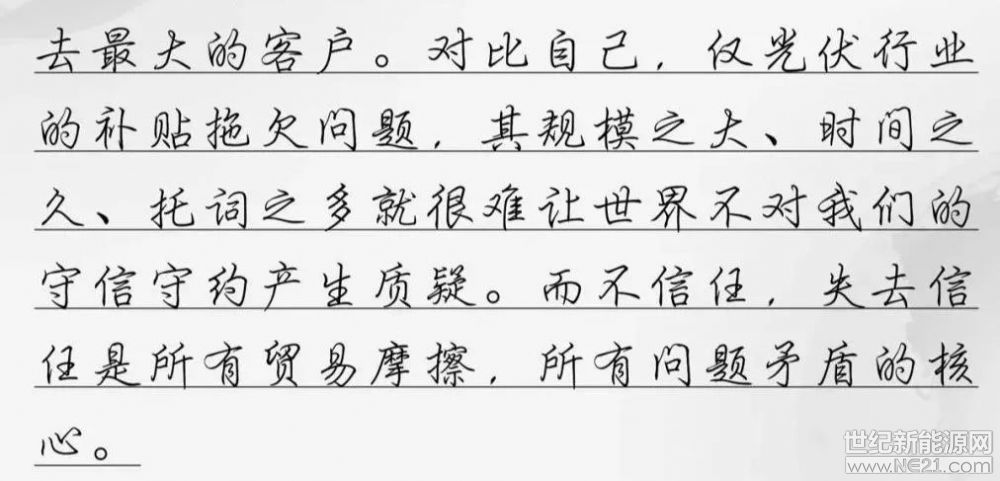 去最大的客户。对比自己，仅光伏行业
的补贴拖欠问题，其规模之大、时间之
久、托词之多就很难让世界不对我们的
守信守约产生质疑。而不信任，失去信
任是所有贸易摩擦，所有问题矛盾的核
心。
世纪新能源网
www.NE21.com